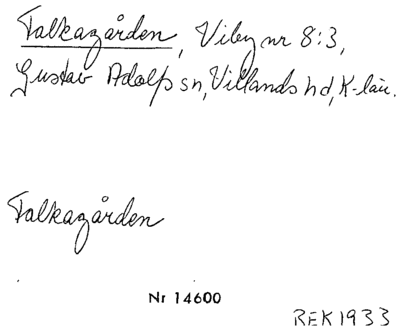 Falkagården, Viby nr 8:3,
Gustav Adolfs sn, Villands hd, K-län.
Falkagården
Nr 14600
REK 1933